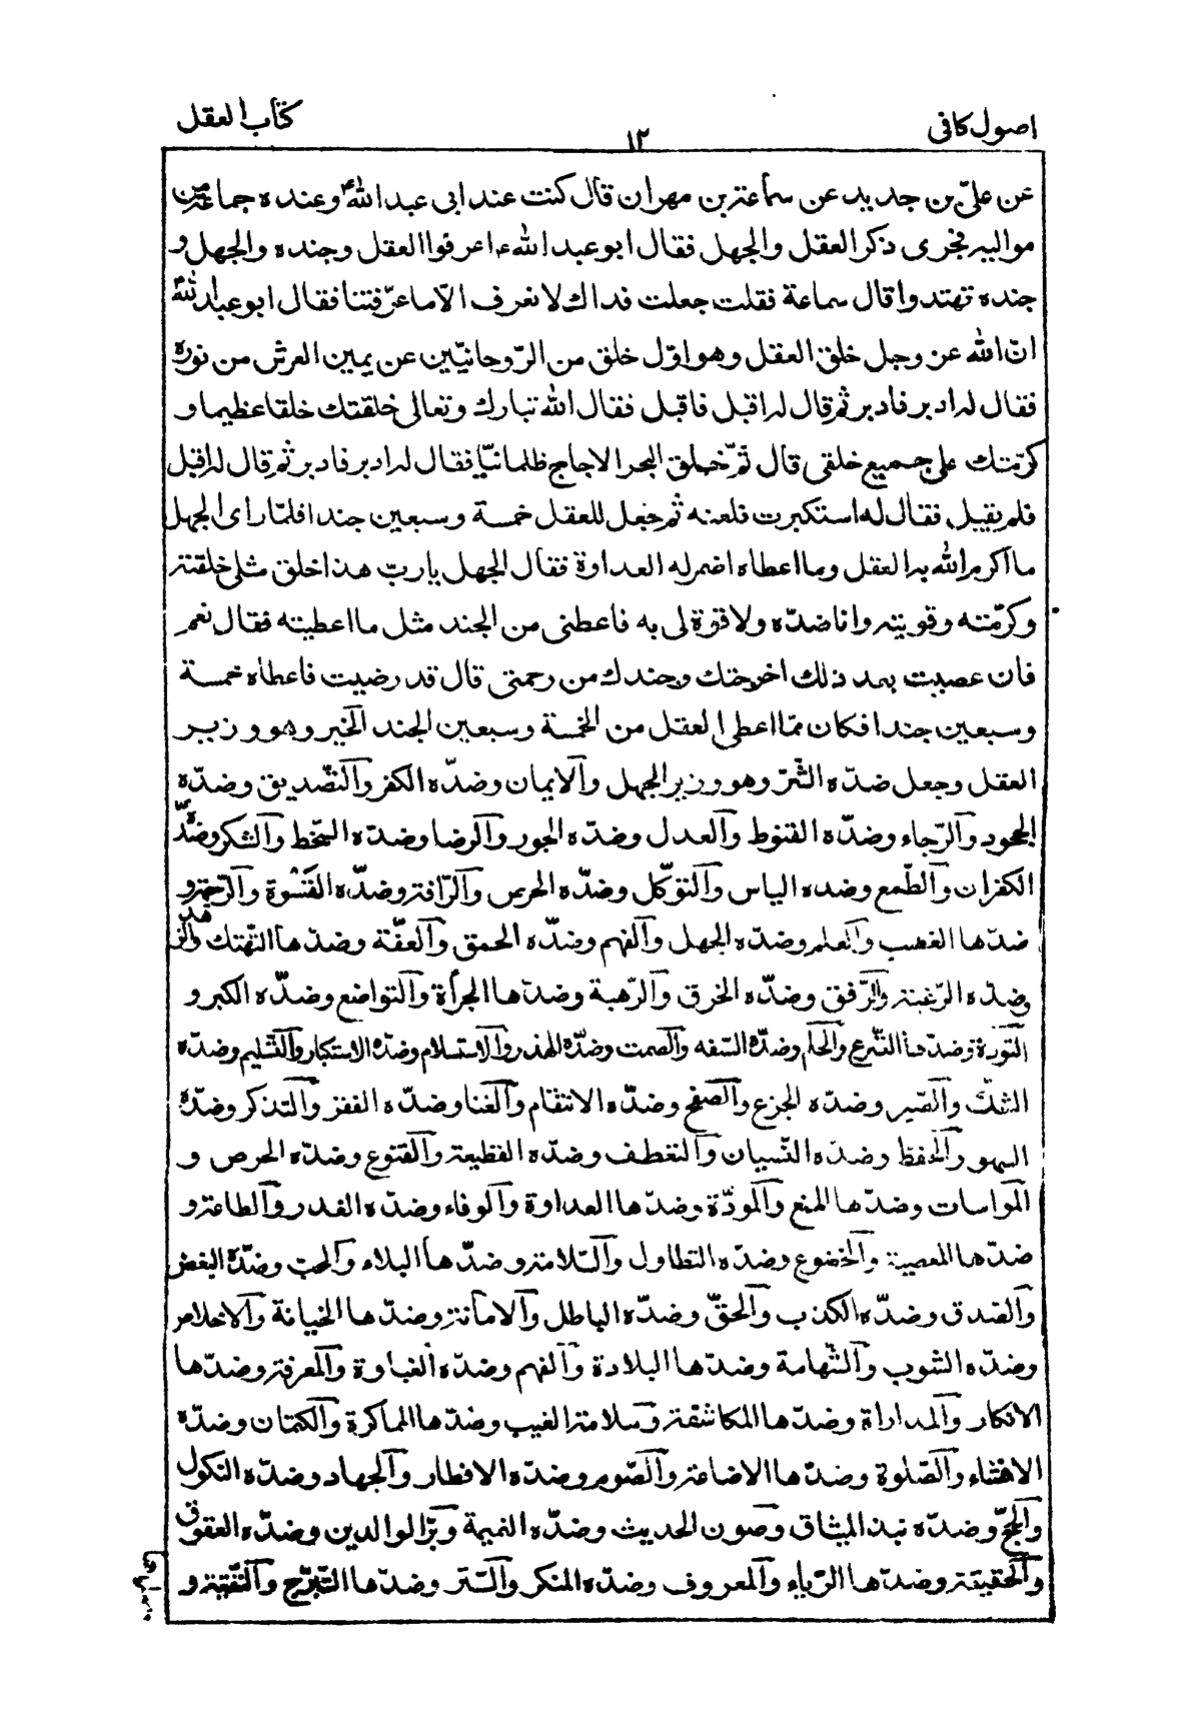 اصول كافى
١٢
كتاب العقل
عن علىّ بن حديد عن سماعة بن مهران قال كنت عند ابى عبد الله ع وعنده جماعة من
مواليه فجرى ذكر العقل والجهل فقال ابو عبد الله ع اعرفوا العقل وجنده والجهل و
جنده تهتدوا قال سماعة فقلت جعلت فداك لا نعرف الّا ما عرّفتنا فقال ابو عبد الله ع
انّ الله عز وجل خلق العقل وهو اوّل خلق من الرّوحانيّين عن يمين العرش من نوره
فقال له ادبر فادبر ثم قال له اقبل فاقبل فقال الله تبارك وتعالى خلقتك خلقا عظيما و
كرّمتك على جميع خلقى قال ثمّ خلق الجهل من البحر الاجاج ظلمانيّا فقال له ادبر فادبر ثم قال له اقبل
فلم يقبل فقال له استكبرت فلعنه ثم جعل للعقل خمسة وسبعين جندا فلمّا راى الجهل
ما اكرم الله به العقل وما اعطاه اضمر له العداوة فقال الجهل يا ربّ هذا خلق مثلى خلقته
وكرّمته وقويته وانا ضدّه ولا قوّة لى به فاعطنى من الجند مثل ما اعطيته فقال نعم
فان عصيت بعد ذلك اخرجتك وجندك من رحمتى قال قد رضيت فاعطاه خمسة
وسبعين جندا فكان ممّا اعطى العقل من الخمسة وسبعين الجند الخير وهو وزير
العقل وجعل ضدّه الشّرّ وهو وزير الجهل والايمان وضدّه الكفر والتّصديق وضدّه
الجحود والرّجاء وضدّه القنوط والعدل وضدّه الجور والرضا وضدّه السّخط والشكر وضدّه
الكفران والطّمع وضده الياس والتوكّل وضدّه الحرص والرّافة وضدّه القسْوة والرّحمة و
ضدّها الغضب والعلم وضدّه الجهل والفهم وضدّه الحمق والعفّة وضدّها التّهتك والزهد
وضدّه الرّغبة والرّفق وضدّه الخرق والرّهبة وضدّها الجرأة والتواضع وضدّه الكبر و
التّؤدة وضدّها التّسّرع والحلم وضدّه السّفه والصمت وضدّه الهذر والاستسلام وضدّه الاستكبار والتّسليم وضدّه
الشّكّ والصّبر وضدّه الجزع والصفح وضدّه الانتقام والغنا وضدّه الفقر والتّذكر وضدّه
السهو والحفظ وضدّه النّسيان والتعطف وضدّه القطيعة والقنوع وضدّه الحرص و
المواسات وضدّها المنع والمودّة وضدّها العداوة والوفاء وضدّه الغدر والطاعة و
ضدّها المعصية والخضوع وضدّه التطاول والسّلامة وضدّها البلاء والحب وضدّه البغض
والصّدق وضدّه الكذب والحقّ وضدّه الباطل والامانة وضدّها الخيانة والاخلاص
وضدّه الشّوب والشّهامة وضدّها البلادة والفهم وضدّه الغباوة والمعرفة وضدّها
الانكار والمداراة وضدّها المكاشفة وسلامة الغيب وضدّها المماكرة والكتمان وضدّه
الافشاء والصّلوة وضدّها الاضاعة والصّوم وضدّه الافطار والجهاد وضدّه النكول
والحجّ وضدّه نبذ الميثاق وصون الحديث وضدّه النميمة وبرّ الوالدين وضدّه العقوق
والحقيقة وضدّها الرّياء والمعروف وضدّه المنكر والسّتر وضدّها التّبرّج والتّقيّة و